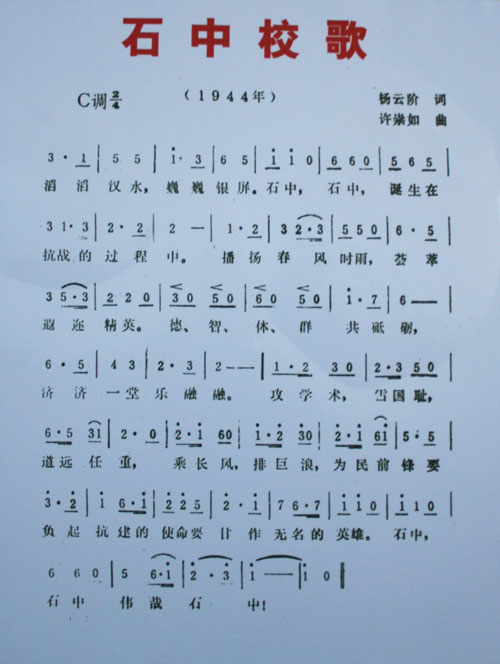 石中校歌
C调 2/4 （1944年） 杨云阶 词
许崇如 曲
3 · 1 | 5 5 | 1 · 3 | 6 5 | 1 1 0 | 6 6 0 | 5 6 5 |
滔 滔 汉 水，巍 巍 银 屏。石 中， 石 中， 诞 生 在
3 1 · 3 | 2 · 2 | 2 — | 1 · 2 | 3 2·3 | 5 5 0 | 6 · 5 |
抗 战 的 过 程 中。 播 扬 春 风 时 雨， 荟 萃
3 5·3 | 2 2 0 | 3 0 5 0 | 6 0 5 0 | 1 · 7 | 6 — |
遐 迩 精 英。 德、 智、 体、 群 共 砥 砺，
6 · 5 | 4 3 | 2 · 3 | 2 — — | 1 · 2 3 0 | 2·3 5 0 |
济 济 一 堂 乐 融 融。 攻 学 术， 雪 国 耻，
6·5 3 1 | 2 · 0 | 2·1 6 0 | 1·2 3 0 | 2·1 6 1 | 5·5 |
道 远 任 重， 乘 长 风， 排 巨 浪， 为 民 前 锋 要
3 · 2 | 1 6·1 | 2 2 5 | 2 · 1 | 7 6·7 | 1 1 0 | 1 1 0 |
负 起 抗 建 的 使 命 要 甘 作 无 名 的 英 雄。 石 中，
6 6 0 | 5 6·1 | 2 · 3 | 1 — | 1 0 ‖
石 中 伟 哉 石 中！